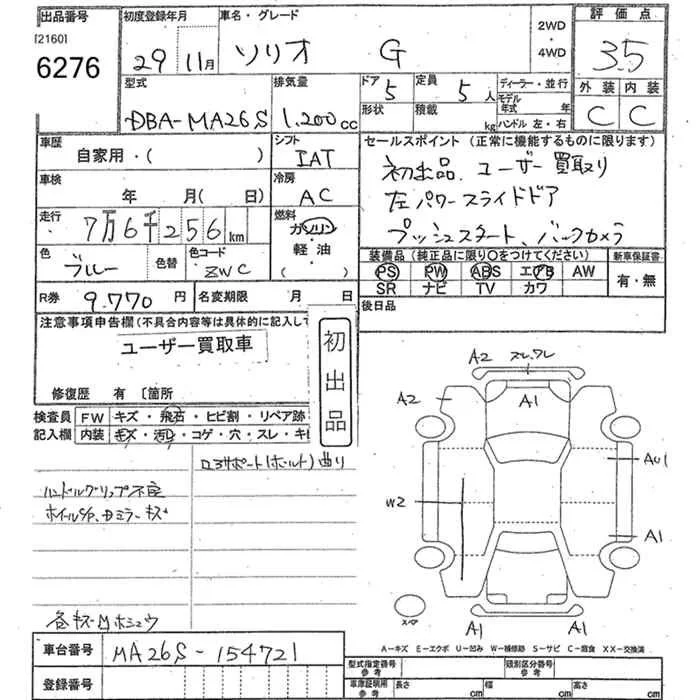 出品番号 初度登録年月 車名・グレード 2WD・4WD 評価点
[2160]
6276 29年11月 ソリオ G 3.5
型式 排気量 ドア 定員 ディーラー・並行 外装 内装
DBA-MA26S 1,200cc 5 5人 モデル年式 年 C C
形状 積載 kg ハンドル 左・右
車歴 シフト セールスポイント (正常に機能するものに限ります)
自家用・( ) IAT 初出品、ユーザー買取り
車検 冷房 左パワースライドドア
年 月( 日) AC プッシュスタート、バックカメラ
走行 7万6千256km 燃料 ガソリン・軽油( )
装備品(純正品に限り○をつけてください) 新車保証書
色 ブルー 色替 色コード ZWC PS PW ABS エアB AW 有・無
SR ナビ TV カワ
R券 9.770円 名変期限 月 日 後日品
注意事項申告欄(不具合内容等は具体的に記入して
ユーザー買取車
初出品
修復歴 有 〔箇所
検査員記入欄 FW キズ・飛石・ヒビ割・リペア跡
内装 キズ・汚れ・コゲ・穴・スレ・キ
ロアサポート(ボルト)曲り
ハンドルグリップ不良
ホイールS/P、ドミラーキズ
A2 スレ、ワレ
A2 A1
AU1
W2
A1
スペア
A1 A1
A-キズ E-エクボ U-凹み W-補修跡 S-サビ C-腐食 XX-交換済
車台番号 MA26S-154721
登録番号
型式指定番号 参考 類別区分番号 参考
車庫証明用 参考 長さ cm 幅 cm 高さ cm